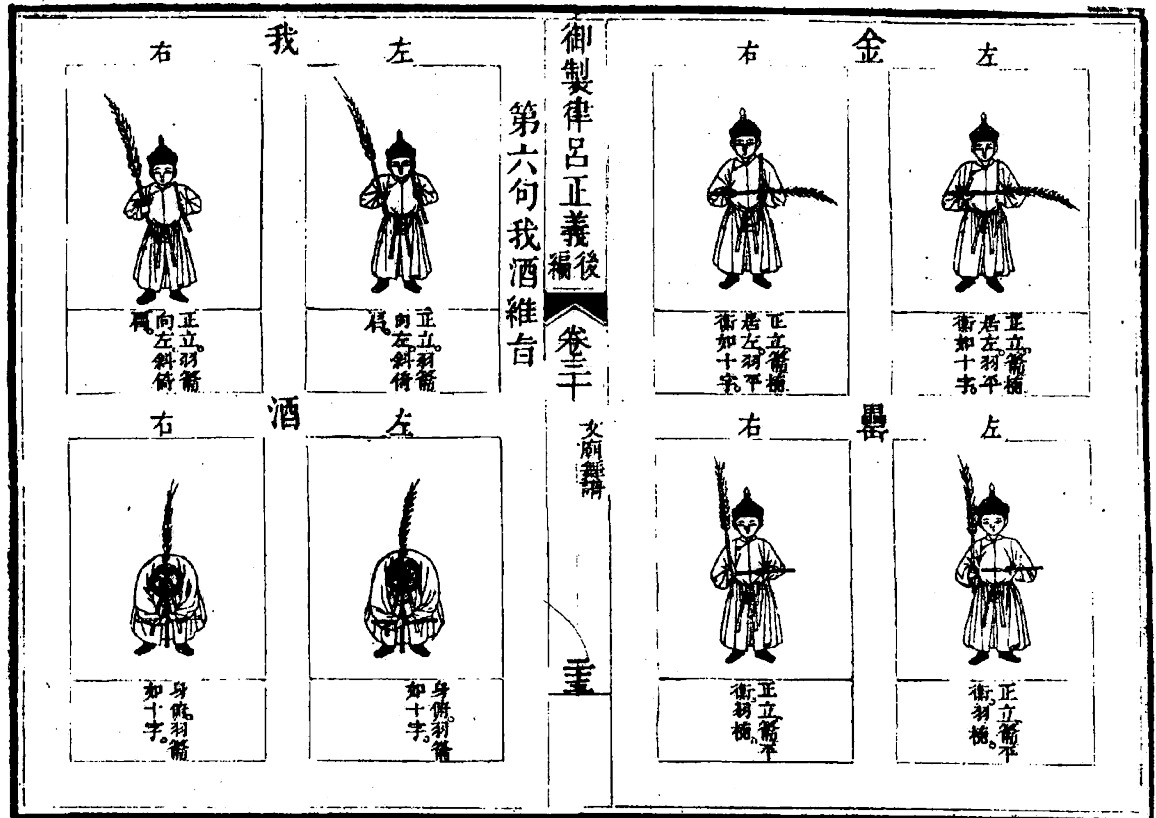 金
左
正立。籥植
居左。羽平
衡如十字。
右
正立。籥植
居左。羽平
衡如十字。
罍
左
正立。籥平
衡。羽植。
右
正立。籥平
衡。羽植。
御製律呂正義後編
卷三十
文廟舞譜
第六句我酒維旨
我
左
正立。羽籥
向左。斜倚
肩。
右
正立。羽籥
向左。斜倚
肩。
酒
左
身俯。羽籥
如十字。
右
身俯。羽籥
如十字。